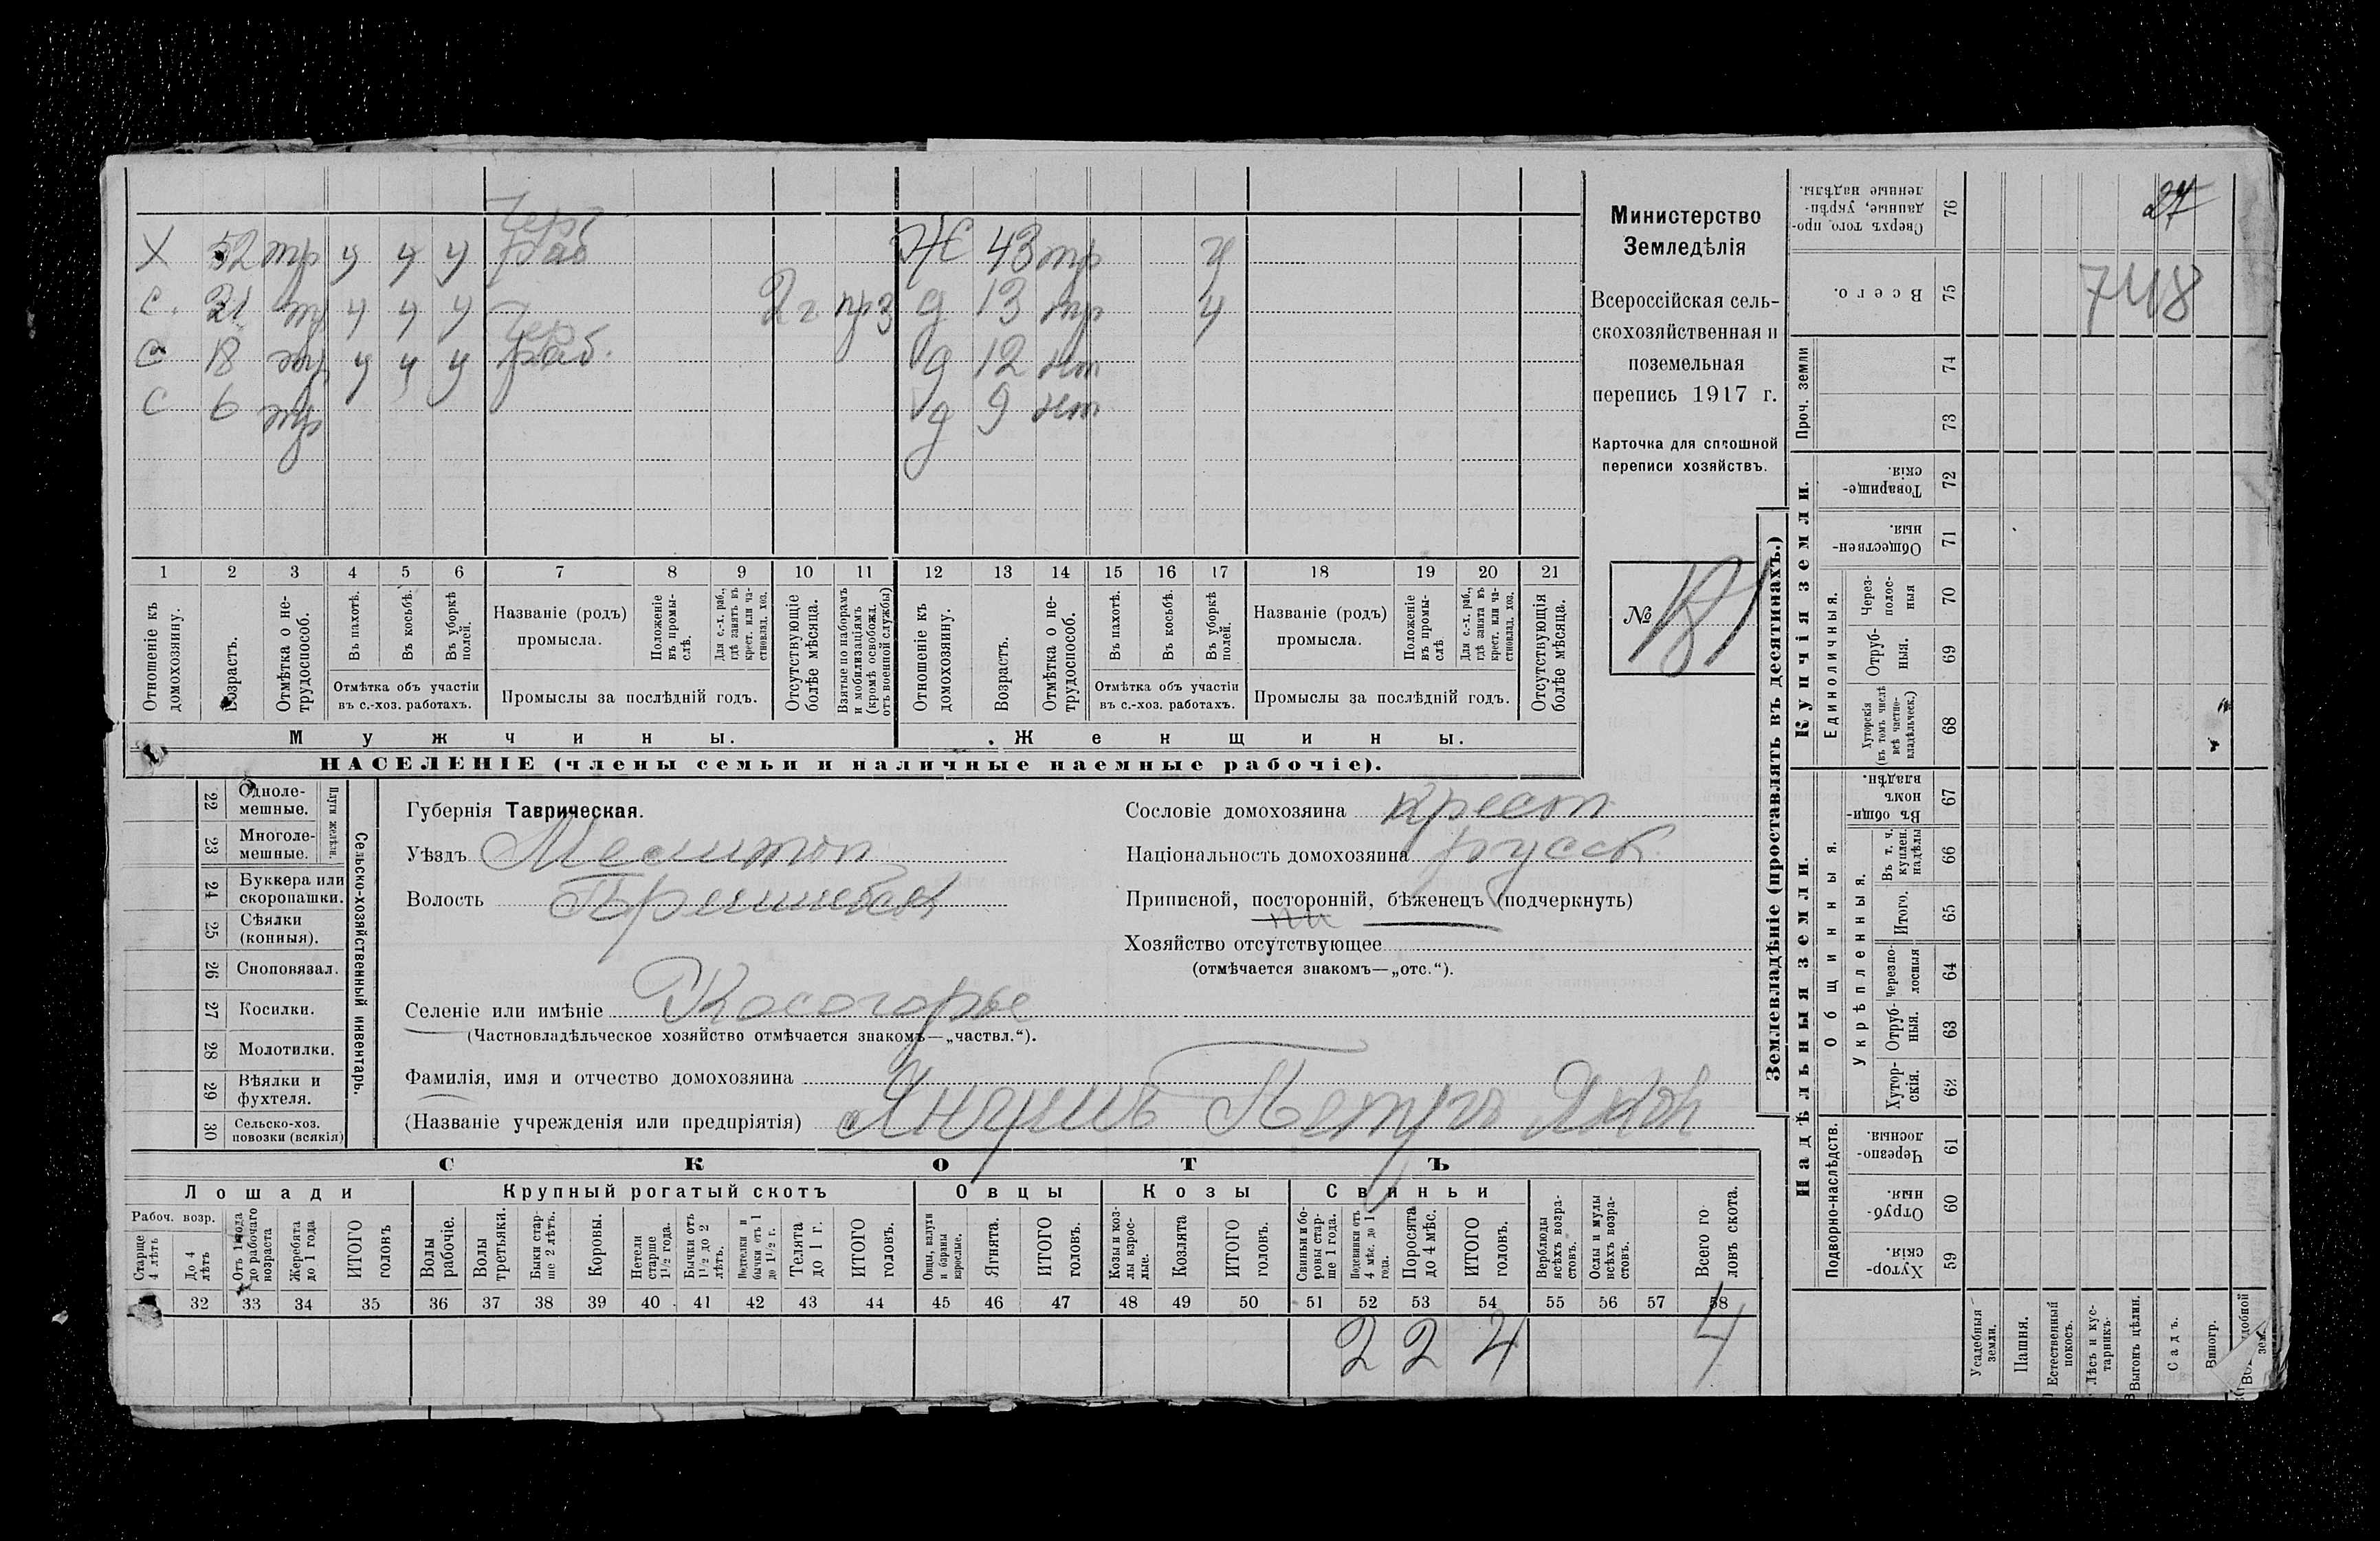 Черн
Х 52 тр у у у раб Ж 43 тр у
С. 21 тр у у у 2 г. при з д 13 тр у
Черн
С 18 тр у у у раб. д 12 нт
С 6 д 9 нт
1 2 3 4 5 6 7 8 9 10 11 12 13 14 15 16 17 18 19 20 21
Отношеніе къ домохозяину.
Возрастъ.
Отмѣтка о нетрудоспособ.
Въ пахотѣ.
Въ косьбѣ.
Въ уборкѣ полей.
Отмѣтка объ участіи
въ с.-хоз. работахъ.
Названіе (родъ)
промысла.
Положеніе въ промыслѣ.
Для с.-х. раб., гдѣ занятъ въ крест. или частновлад. хоз.
Промыслы за послѣдній годъ.
Отсутствующіе болѣе мѣсяца.
Взятые по наборамъ и мобилизаціямъ (кромѣ освобожд. отъ военной службы)
Отношеніе къ домохозяину.
Возрастъ.
Отмѣтка о нетрудоспособ.
Въ пахотѣ.
Въ косьбѣ.
Въ уборкѣ полей.
Отмѣтка объ участіи
въ с.-хоз. работахъ.
Названіе (родъ)
промысла.
Положеніе въ промыслѣ
Для с.-х. раб., гдѣ занята въ крест. или частновлад. хоз.
Промыслы за послѣдній годъ.
Отсутствующія болѣе мѣсяца.
Мужчины. Женщины.
НАСЕЛЕНІЕ (члены семьи и наличные наемные рабочіе).
Министерство
Земледѣлія
Всероссійская сель-
скохозяйственная и
поземельная
перепись 1917 г.
Карточка для сплошной
переписи хозяйствъ.
№ 181
22 Одноле-
мешные.
23 Многоле-
мешные.
Плуги желѣзн.
24 Буккера или
скоропашки.
25 Сѣялки
(конныя).
26 Сноповязал.
27 Косилки.
28 Молотилки.
29 Вѣялки и
фухтеля.
30 Сельско-хоз.
повозки (всякія)
Сельско-хозяйственный инвентарь.
Губернія Таврическая.
Уѣздъ Мелитоп
Волость
Селеніе или имѣніе Косогорье
(Частновладѣльческое хозяйство отмѣчается знакомъ—„частвл.“).
Фамилія, имя и отчество домохозяина
(Названіе учрежденія или предпріятія) Петръ Яков
Сословіе домохозяина крест
Національность домохозяина русск.
Приписной, посторонній, бѣженецъ (подчеркнуть)
Хозяйство отсутствующее
(отмѣчается знакомъ—„отс.“).
СКОТЪ
Лошади Крупный рогатый скотъ Овцы Козы Свиньи
Рабоч. возр.
Старше 4 лѣтъ
До 4 лѣтъ
Отъ 1 года до рабочаго возраста
Жеребята до 1 года
ИТОГО головъ
Волы рабочіе.
Волы третьяки.
Быки старше 2 лѣтъ.
Коровы.
Нетели старше 1 1/2 года.
Бычки отъ 1 1/2 до 2 лѣтъ.
Подтелки и бычки отъ 1 до 1 1/2 г.
Телята до 1 г.
ИТОГО головъ.
Овцы, валухи и бараны взрослые.
Ягнята.
ИТОГО головъ.
Козы и козлы взрослые.
Козлята
ИТОГО головъ.
Свиньи и боровы старше 1 года.
Подсвинки отъ 4 мѣс. до 1 года.
Поросята до 4 мѣс.
ИТОГО головъ.
Верблюды всѣхъ возрастовъ.
Ослы и мулы всѣхъ возрастовъ.
Всего головъ скота.
32 33 34 35 36 37 38 39 40 41 42 43 44 45 46 47 48 49 50 51 52 53 54 55 56 57 58
2 2 4 4
Землевладѣніе (проставлять въ десятинахъ.)
Сверхъ того, проданные, укрѣпленные надѣлы. 76
27
Всего. 75
748
Проч. земли
74
73
Купчія земли.
Товарищескія. 72
Общественныя. 71
Единоличныя.
Черезполосныя 70
Отрубныя. 69
Хуторскія (въ томъ числѣ всѣ частновладѣльческ.) 68
Надѣльныя земли.
Общинныя.
Въ общинномъ владѣн. 67
Укрѣпленныя.
Въ т. ч. куплен. надѣлы 66
Итого. 65
Черезполосныя 64
Отрубныя. 63
Хуторскія. 62
Подворно-наслѣдств.
Черезполосныя. 61
Отрубныя. 60
Хуторскія. 59
Усадебныя земли.
Пашня.
Естественный покосъ.
Лѣсъ и кустарникъ.
Выгонъ цѣлин.
Садъ.
Виногр.